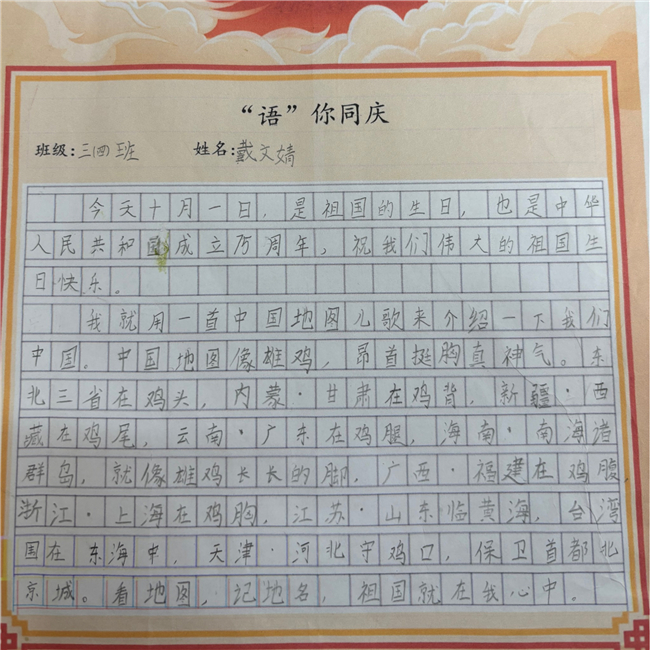 “语”你同庆
班级:三(四)班 姓名:戴文婧
今天十月一日，是祖国的生日，也是中华
人民共和国成立75周年，祝我们伟大的祖国生
日快乐。
我就用一首中国地图儿歌来介绍一下我们
中国。中国地图像雄鸡，昂首挺胸真神气。东
北三省在鸡头，内蒙·甘肃在鸡背，新疆·西
藏在鸡尾，云南·广东在鸡腿，海南·南海诸
群岛，就像雄鸡长长的脚，广西·福建在鸡腹，
浙江·上海在鸡胸，江苏·山东临黄海，台湾
国在东海中，天津·河北守鸡口，保卫首都北
京城。看地图，记地名，祖国就在我心中。